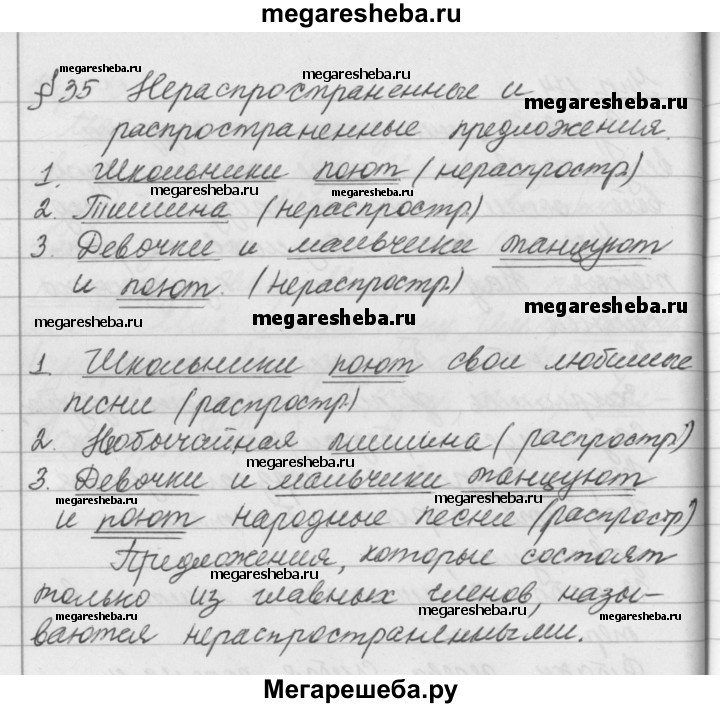 megaresheba.ru
megaresheba.ru
§ 35 Нераспространенные и
megaresheba.ru
megaresheba.ru
распространенные предложения.
1. Школьники поют (нераспростр.)
megaresheba.ru
megaresheba.ru
2. Тишина (нераспростр.)
3. Девочки и мальчики танцуют
и поют. (нераспростр.)
megaresheba.ru
megaresheba.ru
megaresheba.ru
1. Школьники поют свои любимые
песни (распростр.)
2. Необычайная тишина (распростр.)
megaresheba.ru
3. Девочки и мальчики танцуют
megaresheba.ru
megaresheba.ru
и поют народные песни (распростр.)
Предложения, которые состоят
megaresheba.ru
только из главных членов, назы-
megaresheba.ru
megaresheba.ru
ваются нераспространенными.
Мегарешеба.ру